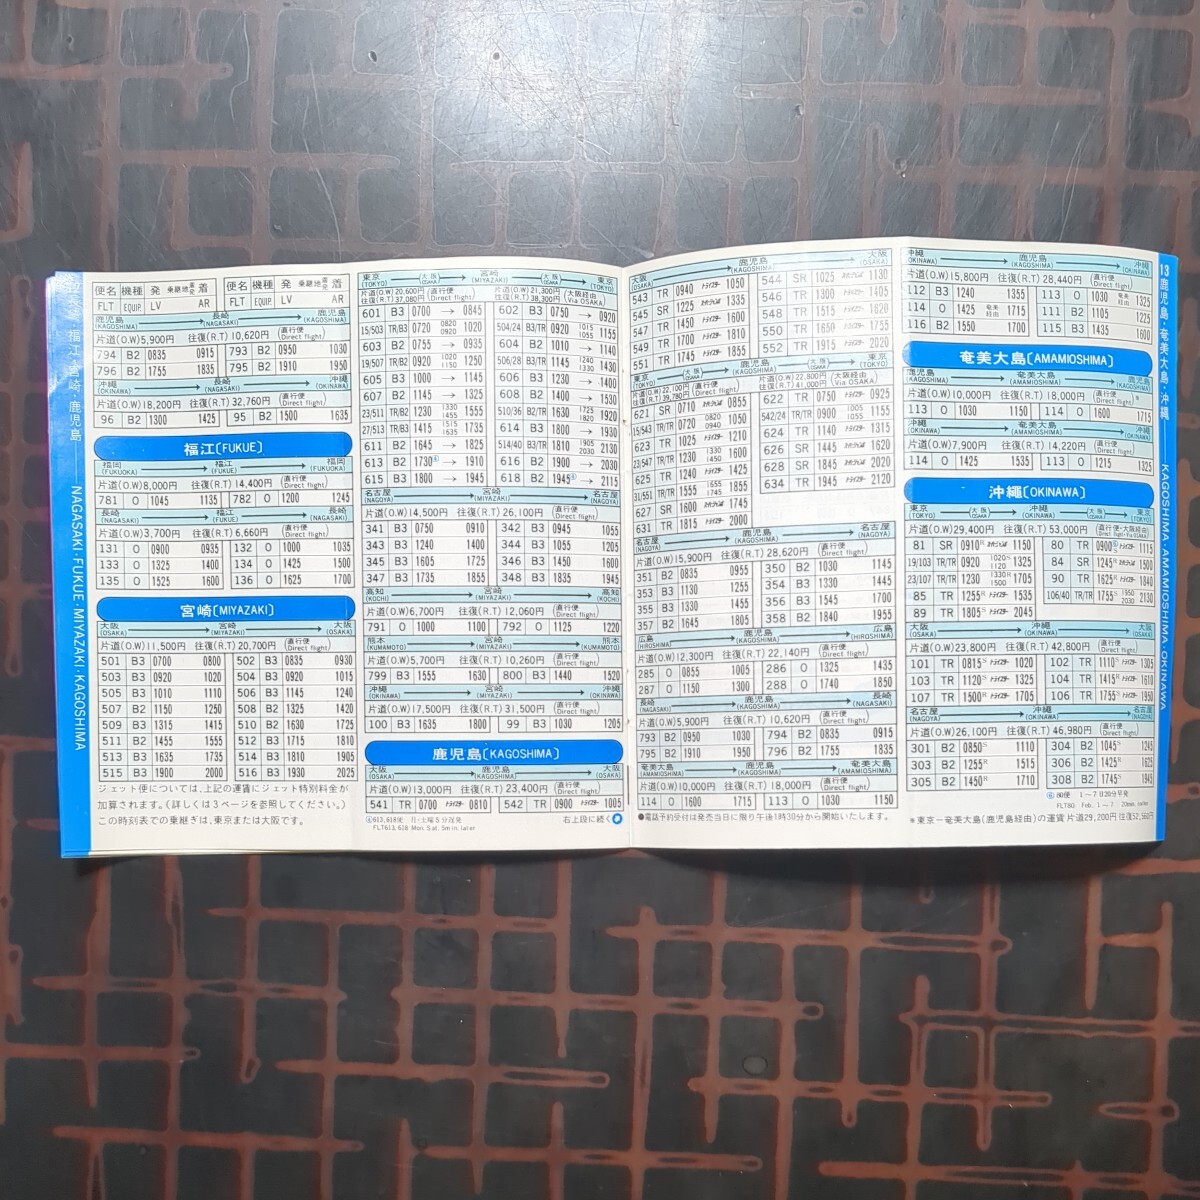 12 長崎・福江・宮崎・鹿児島 NAGASAKI・FUKUE・MIYAZAKI・KAGOSHIMA
便名 機種 発 乗継地 着 便名 機種 発 乗継地 着
FLT EQUIP. LV AR FLT EQUIP. LV AR
鹿児島 長崎 鹿児島
(KAGOSHIMA) (NAGASAKI) (KAGOSHIMA)
片道(O.W)5,900円 往復(R.T)10,620円 (直行便 Direct flight)
794 B2 0835 0915 793 B2 0950 1030
796 B2 1755 1835 795 B2 1910 1950
沖縄 長崎 沖縄
(OKINAWA) (NAGASAKI) (OKINAWA)
片道(O.W)18,200円 往復(R.T)32,760円 (直行便 Direct flight)
96 B2 1300 1425 95 B2 1500 1635
福江(FUKUE)
福岡 福江 福岡
(FUKUOKA) (FUKUE) (FUKUOKA)
片道(O.W)8,000円 往復(R.T)14,400円 (直行便 Direct flight)
781 O 1045 1135 782 O 1200 1245
長崎 福江 長崎
(NAGASAKI) (FUKUE) (NAGASAKI)
片道(O.W)3,700円 往復(R.T)6,660円 (直行便 Direct flight)
131 O 0900 0935 132 O 1000 1035
133 O 1325 1400 134 O 1425 1500
135 O 1525 1600 136 O 1625 1700
宮崎(MIYAZAKI)
大阪 宮崎 大阪
(OSAKA) (MIYAZAKI) (OSAKA)
片道(O.W)11,500円 往復(R.T)20,700円 (直行便 Direct flight)
501 B3 0700 0800 502 B3 0835 0930
503 B3 0920 1020 504 B3 0920 1015
505 B3 1010 1110 506 B3 1145 1240
507 B2 1150 1250 508 B2 1325 1420
509 B3 1315 1415 510 B2 1630 1725
511 B2 1455 1555 512 B3 1715 1810
513 B3 1635 1735 514 B3 1810 1905
515 B3 1900 2000 516 B3 1930 2025
ジェット便については、上記の運賃にジェット特別料金が
加算されます。(詳しくは3ページを参照してください。)
この時刻表での乗継ぎは、東京または大阪です。
東京 大阪 宮崎 大阪 東京
(TOKYO) (OSAKA) (MIYAZAKI) (OSAKA) (TOKYO)
片道(O.W)20,600円 往復(R.T)37,080円 (直行便 Direct flight) 片道(O.W)21,300円 往復(R.T)38,300円 (大阪経由 Via OSAKA)
601 B3 0700 → 0845 602 B3 0750 → 0920
15/503 TR/B3 0720 0820 0920 1020 504/24 B3/TR 0920 1015 1055 1155
603 B2 0755 → 0935 604 B2 1010 → 1140
19/507 TR/B2 0920 1020 1150 1250 506/28 B3/TR 1145 1240 1330 1430
605 B3 1000 → 1145 606 B3 1230 → 1400
607 B2 1145 → 1325 608 B2 1400 → 1530
23/511 TR/B2 1230 1330 1455 1555 510/36 B2/TR 1630 1725 1820 1920
27/513 TR/B3 1415 1515 1635 1735 614 B3 1800 → 1930
611 B2 1645 → 1825 514/40 B3/TR 1810 1905 2030 2130
613 B2 1730 → 1910 616 B2 1900 → 2030
615 B3 1800 → 1945 618 B2 1945 → 2115
名古屋 宮崎 名古屋
(NAGOYA) (MIYAZAKI) (NAGOYA)
片道(O.W)14,500円 往復(R.T)26,100円 (直行便 Direct flight)
341 B3 0750 0910 342 B3 0945 1055
343 B3 1240 1400 344 B3 1055 1205
345 B3 1605 1725 346 B3 1450 1600
347 B3 1735 1855 348 B3 1835 1945
高知 宮崎 高知
(KOCHI) (MIYAZAKI) (KOCHI)
片道(O.W)6,700円 往復(R.T)12,060円 (直行便 Direct flight)
791 O 1000 1100 792 O 1125 1220
熊本 宮崎 熊本
(KUMAMOTO) (MIYAZAKI) (KUMAMOTO)
片道(O.W)5,700円 往復(R.T)10,260円 (直行便 Direct flight)
799 B3 1555 1630 800 B3 1440 1520
沖縄 宮崎 沖縄
(OKINAWA) (MIYAZAKI) (OKINAWA)
片道(O.W)17,500円 往復(R.T)31,500円 (直行便 Direct flight)
100 B3 1635 1800 99 B3 1030 1205
鹿児島(KAGOSHIMA)
大阪 鹿児島 大阪
(OSAKA) (KAGOSHIMA) (OSAKA)
片道(O.W)13,000円 往復(R.T)23,400円 (直行便 Direct flight)
541 TR 0700 トライスター 0810 542 TR 0900 トライスター 1005
613,618便 月・土曜5分遅発
FLT613, 618 Mon. Sat. 5min. later
右上段に続く
大阪 鹿児島 大阪
(OSAKA) (KAGOSHIMA) (OSAKA)
543 TR 0940 トライスター 1050 544 SR 1025 スーパージャンボ 1130
545 SR 1225 スーパージャンボ 1335 546 TR 1300 トライスター 1405
547 TR 1450 トライスター 1600 548 TR 1510 トライスター 1615
549 TR 1700 トライスター 1810 550 SR 1650 スーパージャンボ 1755
551 TR 1745 トライスター 1855 552 TR 1915 トライスター 2020
東京 大阪 鹿児島 大阪 東京
(TOKYO) (OSAKA) (KAGOSHIMA) (OSAKA) (TOKYO)
片道(O.W)22,100円 往復(R.T)39,780円 (直行便 Direct flight) 片道(O.W)22,800円 往復(R.T)41,000円 (大阪経由 Via OSAKA)
621 SR 0710 スーパージャンボ 0855 622 TR 0750 トライスター 0925
15/543 TR/TR 0720 0820 0940 1050 542/24 TR/TR 0900 1005 1055 1155
623 TR 1025 トライスター 1210 624 TR 1140 トライスター 1315
23/547 TR/TR 1230 1330 1450 1600 626 SR 1445 スーパージャンボ 1620
625 TR 1240 トライスター 1425 628 SR 1845 スーパージャンボ 2020
31/551 TR/TR 1555 1655 1745 1855 634 TR 1945 トライスター 2120
627 SR 1600 スーパージャンボ 1745
631 TR 1815 トライスター 2000
名古屋 鹿児島 名古屋
(NAGOYA) (KAGOSHIMA) (NAGOYA)
片道(O.W)15,900円 往復(R.T)28,620円 (直行便 Direct flight)
351 B2 0835 0955 350 B2 1030 1145
353 B2 1110 1230 354 B3 1330 1445
355 B3 1330 1455 356 B3 1545 1700
357 B2 1645 1805 358 B2 1840 1955
広島 鹿児島 広島
(HIROSHIMA) (KAGOSHIMA) (HIROSHIMA)
片道(O.W)12,300円 往復(R.T)22,140円 (直行便 Direct flight)
285 O 0855 1005 286 O 1325 1435
287 O 1150 1300 288 O 1740 1850
長崎 鹿児島 長崎
(NAGASAKI) (KAGOSHIMA) (NAGASAKI)
片道(O.W)5,900円 往復(R.T)10,620円 (直行便 Direct flight)
793 B2 0950 1030 794 B2 0835 0915
795 B2 1910 1950 796 B2 1755 1835
奄美大島 鹿児島 奄美大島
(AMAMIOSHIMA) (KAGOSHIMA) (AMAMIOSHIMA)
片道(O.W)10,000円 往復(R.T)18,000円 (直行便 Direct flight)
114 O 1600 1715 113 O 1030 1150
●電話予約受付は発売当日に限り午後1時30分から開始いたします。
沖縄 鹿児島 沖縄
(OKINAWA) (KAGOSHIMA) (OKINAWA)
片道(O.W)15,800円 往復(R.T)28,440円 (直行便 Direct flight)
112 B3 1240 1355 113 O 1030 奄美経由 1325
114 O 1425 奄美経由 1715 111 B2 1105 1225
116 B2 1550 1700 115 B3 1435 1600
奄美大島(AMAMIOSHIMA)
鹿児島 奄美大島 鹿児島
(KAGOSHIMA) (AMAMIOSHIMA) (KAGOSHIMA)
片道(O.W)10,000円 往復(R.T)18,000円 (直行便 Direct flight)*
113 O 1030 1150 114 O 1600 1715
沖縄 奄美大島 沖縄
(OKINAWA) (AMAMIOSHIMA) (OKINAWA)
片道(O.W)7,900円 往復(R.T)14,220円 (直行便 Direct flight)
114 O 1425 1535 113 O 1215 1325
沖縄(OKINAWA)
東京 大阪 沖縄 大阪 東京
(TOKYO) (OSAKA) (OKINAWA) (OSAKA) (TOKYO)
片道(O.W)29,400円 往復(R.T)53,000円 (直行便・大阪経由 Direct flight・Via OSAKA)
81 SR 0910 スーパージャンボ 1150 80 TR 0900 トライスター 1115
19/103 TR/TR 0920 1020 1120 1325 84 SR 1245 スーパージャンボ 1500
23/107 TR/TR 1230 1330 1500 1705 90 TR 1625 トライスター 1840
85 TR 1255 トライスター 1535 106/40 TR/TR 1755 1950 2030 2130
89 TR 1805 トライスター 2045
大阪 沖縄 大阪
(OSAKA) (OKINAWA) (OSAKA)
片道(O.W)23,800円 往復(R.T)42,800円 (直行便 Direct flight)
101 TR 0815 トライスター 1020 102 TR 1110 トライスター 1305
103 TR 1120 トライスター 1325 104 TR 1415 トライスター 1610
107 TR 1500 トライスター 1705 106 TR 1755 トライスター 1950
名古屋 沖縄 名古屋
(NAGOYA) (OKINAWA) (NAGOYA)
片道(O.W)26,100円 往復(R.T)46,980円 (直行便 Direct flight)
301 B2 0850 1110 304 B2 1045 1245
303 B2 1255 1515 306 B2 1600
305 B2 1450 1710 308 B2 1745 1945
80便 1〜7日20分早発
FLT80 Feb. 1〜7 20min.
*東京ー奄美大島(鹿児島経由)の運賃 片道29,200円 往復52,560円
13 鹿児島・奄美大島・沖縄 KAGOSHIMA・AMAMIOSHIMA・OKINAWA